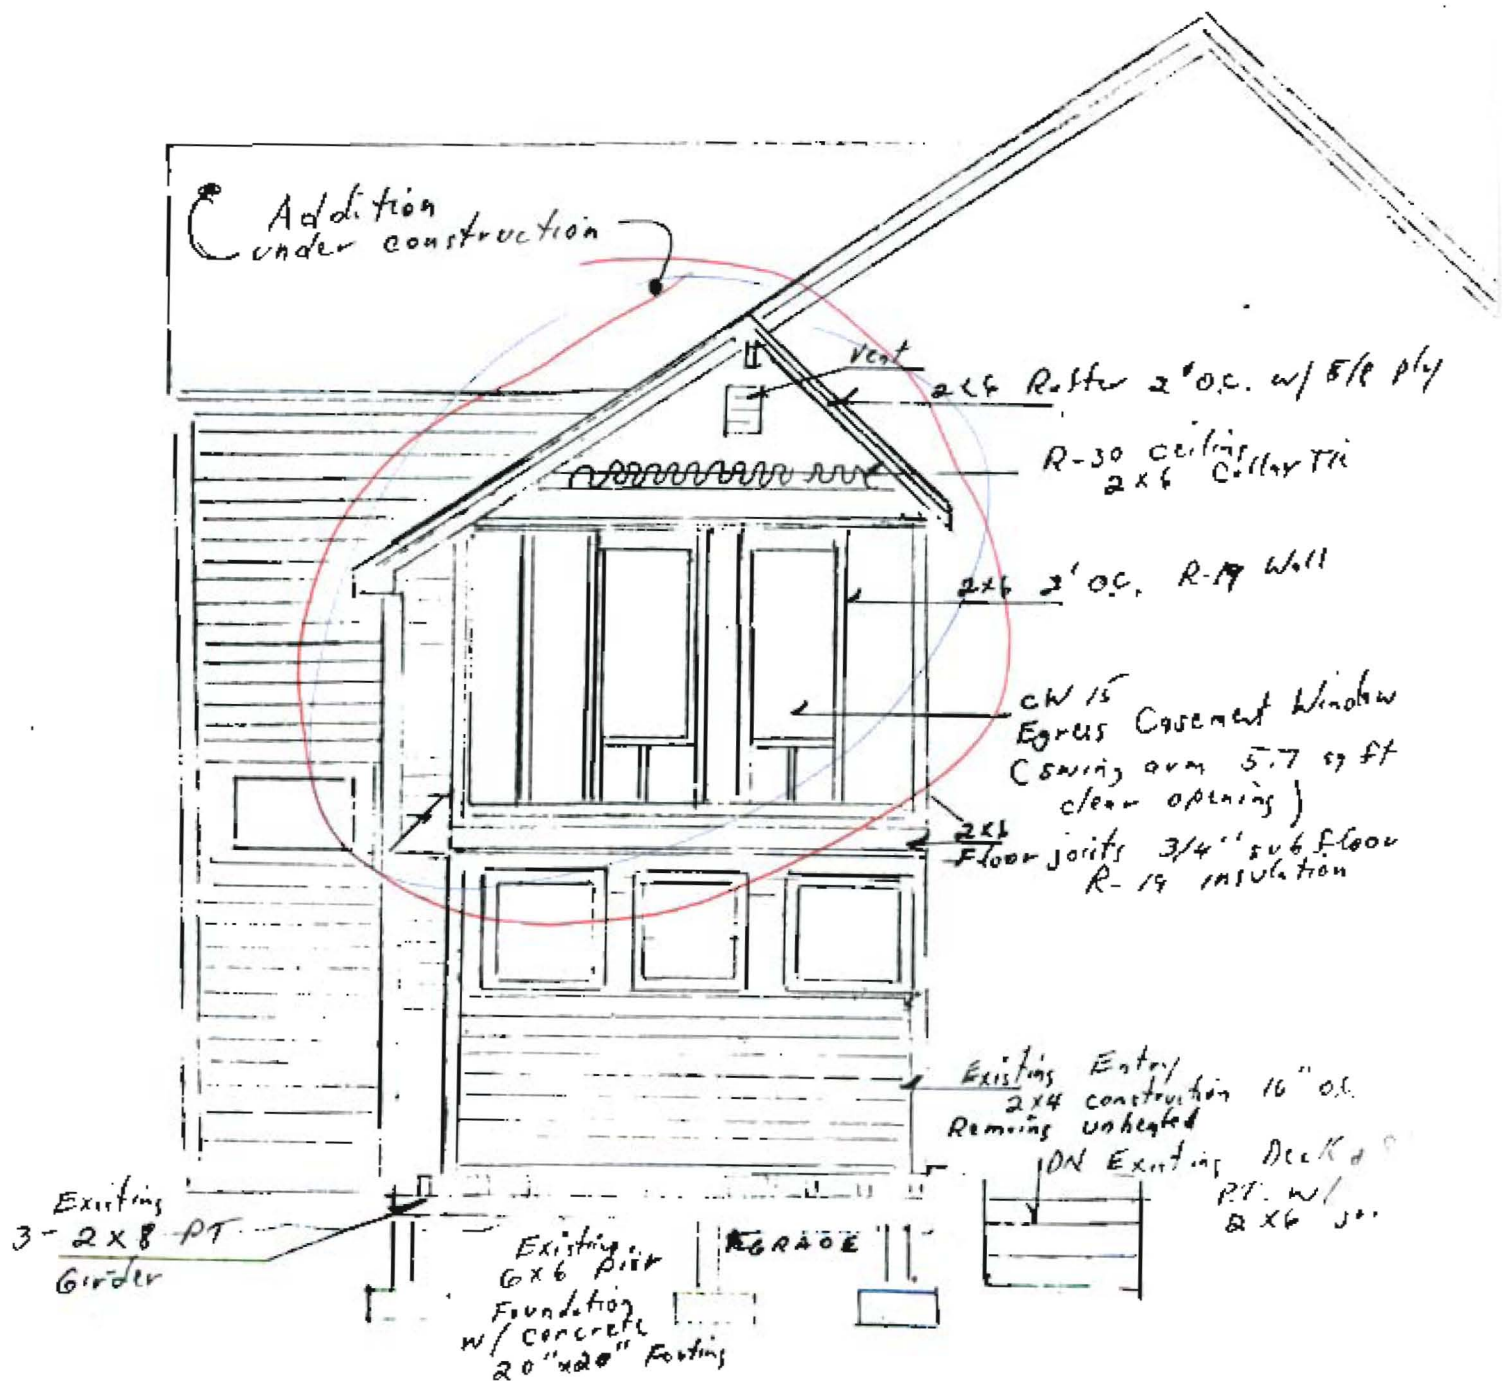 Addition
under construction
vent
2x6 Rafter 2' O.C. w/ 5/8 ply
R-30 ceiling
2x6 Collar Tie
2x6 2' O.C. R-19 Wall
CW 15
Egress Casement Window
(swing arm 5.7 sq ft
clear opening)
2x6
Floor joists 3/4" sub floor
R-19 insulation
Existing Entry
2x4 construction 16" O.C.
unheated
DN Existing Deck
P.T. w/
2x6
Existing
3-2x8 PT
Girder
Existing
6x6 Pier
Foundation
w/ concrete
20"x20" Footing
GRADE